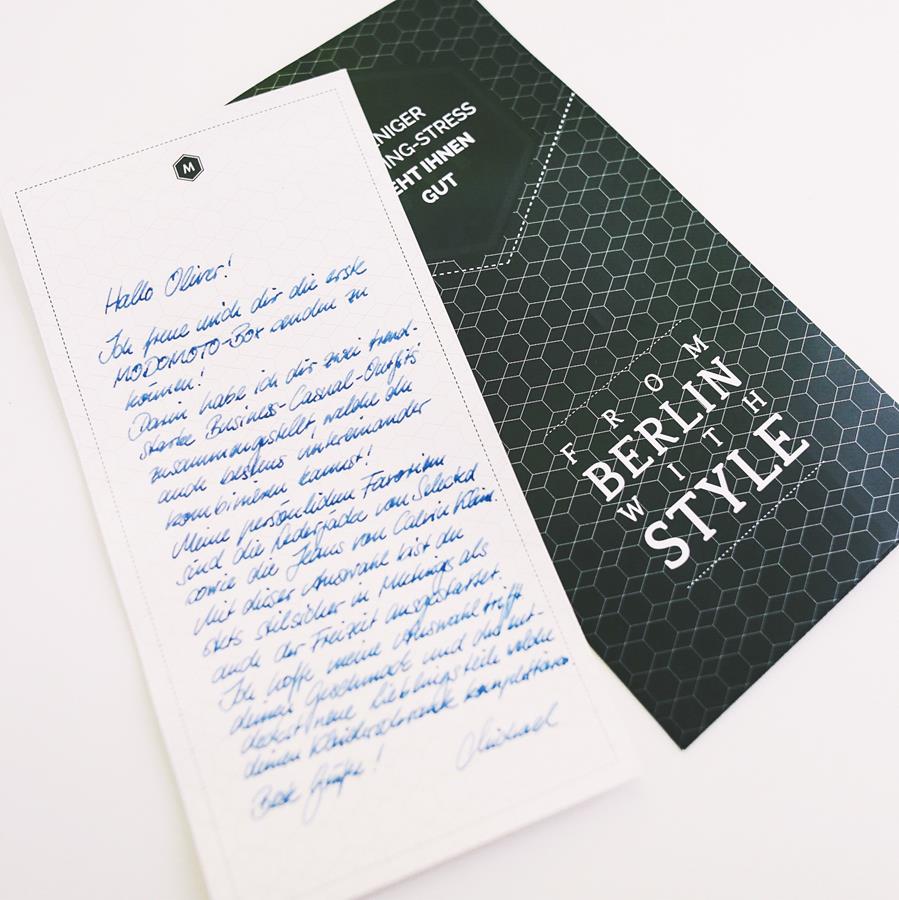 M
Hallo Oliver!
Ich freue mich dir die erste
MODOMOTO-Box senden zu
können!
Darin habe ich dir zwei trend-
starke Business-Casual-Outfits
zusammengestellt, welche du
auch bestens untereinander
kombinieren kannst!
Meine persönlichen Favoriten
sind die Lederjacke von Selected
sowie die Jeans von Calvin Klein.
Mit dieser Auswahl bist du
stets stilsicher in Meetings als
auch der Freizeit ausgestattet.
Ich hoffe meine Auswahl trifft
deinen Geschmack und du ent-
deckst neue Lieblingsteile welche
deinen Kleiderschrank komplettieren
Beste Grüße!
Michael
NIGER
ING-STRESS
EHT IHNEN
GUT
FROM
BERLIN
WITH
STYLE